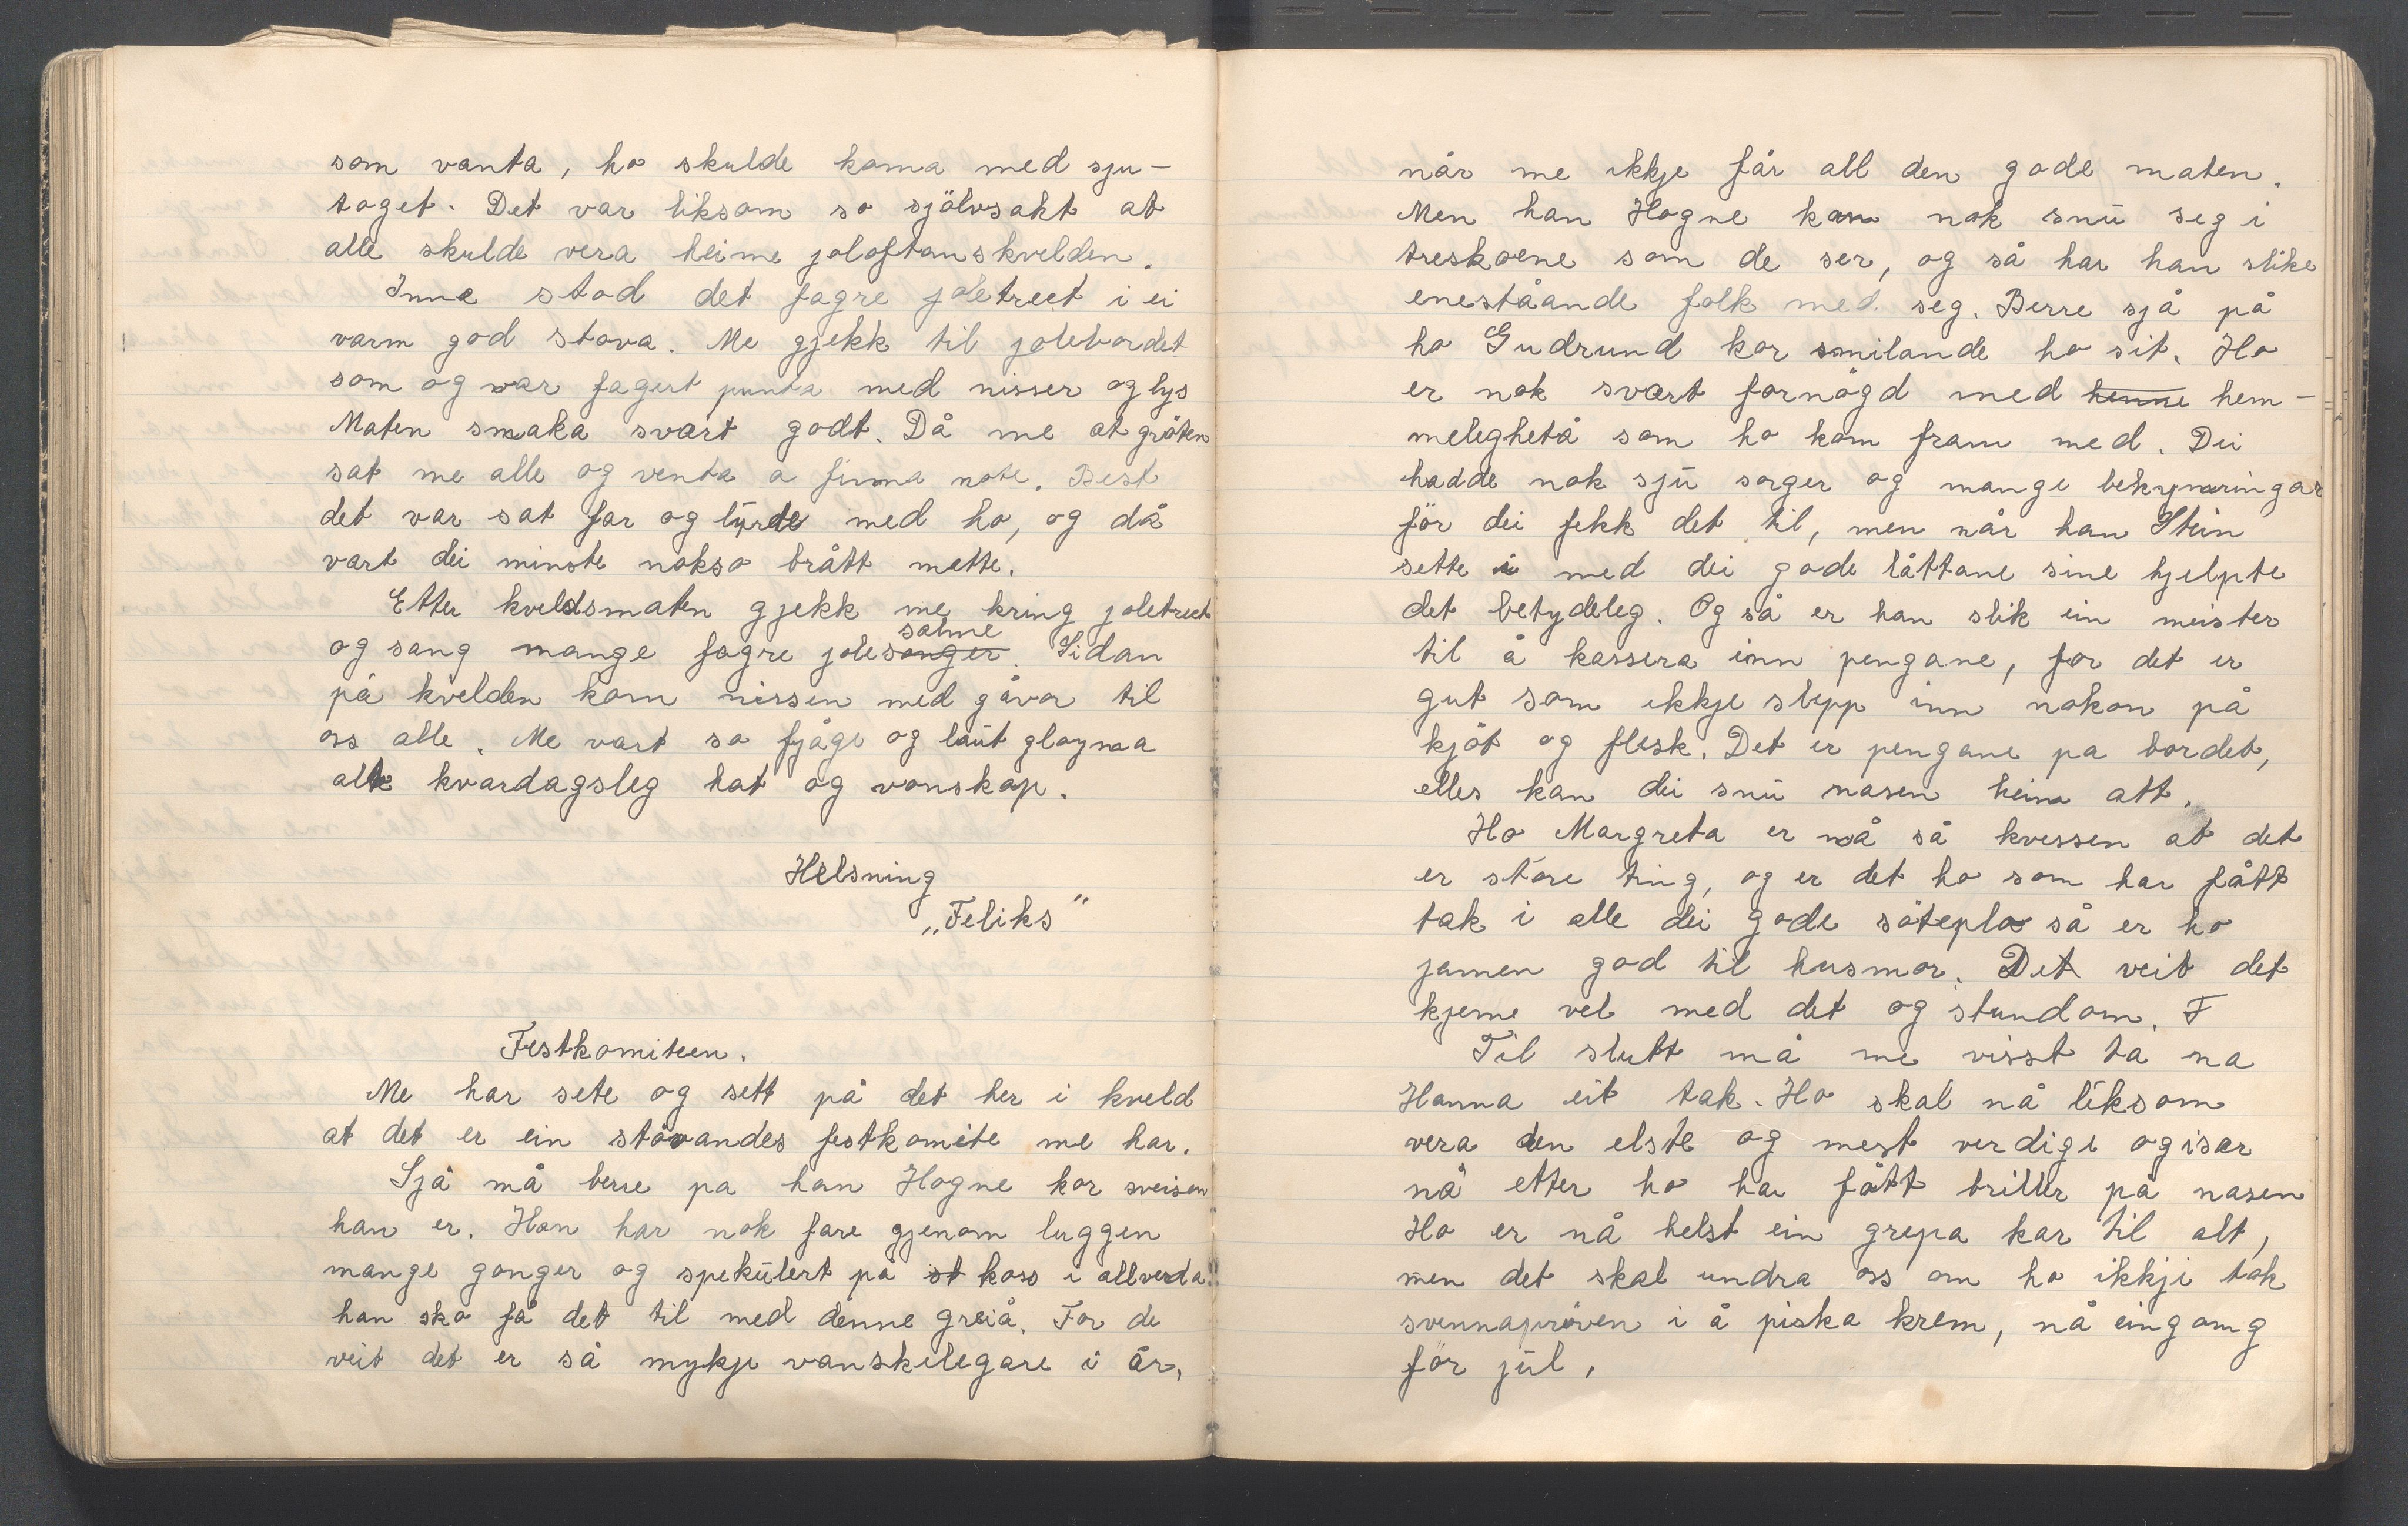 som vanta, ho skulde koma med sju-
toget. Det var liksom so sjölvsakt at
alle skulde vera heime joloftanskvelden.
Inne stod det fagre joletreet i ei
varm god stova. Me gjekk til jolebordet
som og var fagert punta med nisser og lys
Maten smaka svært godt. Då me åt gröten
sat me alle og venta a finna note. Best
det var sat far og lyrde med ho, og då
vart dei minste nokso brått mette.
Etter kveldsmaten gjekk me kring joletreet
og sang mange fagre jolesonger salme. Sidan
på kvelden kom nissen med gåvor til
oss alle. Me vart so fjåge og laut gloyma
alt kvardagsleg hat og vonskap.
Helsning
„Feliks"
Festkomiteen.
Me har sete og sett på det her i kveld
at det er ein stövandes festkomite me har.
Sjå må berre pa han Hogne kor sveisen
han er. Han har nok fare gjenom luggen
mange gonger og spekulert på st koss i allverda
han sko få det til med denne greiå. For de
veit det er så mykje vanskelegare i år,
når me ikkje får all den gode maten.
Men han Hogne kan nok snu seg i
treskoene som de ser, og så har han slike
eneståande folk med seg. Berre sjå på
ho Gudrund kor smilande ho sit. Ho
er nok svært fornögd med henne hem-
meleghetå som ho kom fram med. Dei
hadde nok sju sorger og mange bekymringar
för dei fekk det til, men når han Stein
sette i med dei gode låttane sine hjelpte
det betydeleg. Og så er han slik ein meister
til å kassera inn pengane, for det er
gut som ikkje slepp inn nokon på
kjöt og flesk. Det er pengane pa bordet,
elles kan dei snu nasen heim att.
Ho Margreta er nå så kvessen at det
er store ting, og er det ho som har fått
tak i alle dei gode söteplo så er ho
jamen god til husmor. Det veit det
kjeme vel med det og stundom. F
Til slutt må me visst ta na
Hanna eit tak. Ho skal nå liksom
vera den elste og mest verdige og især
nå etter ho har fått briller på nasen
Ho er nå helst ein grepa kar til alt,
men det skal undra oss om ho ikkji tok
svennapröven i å piska krem, nå eingong
för jul.